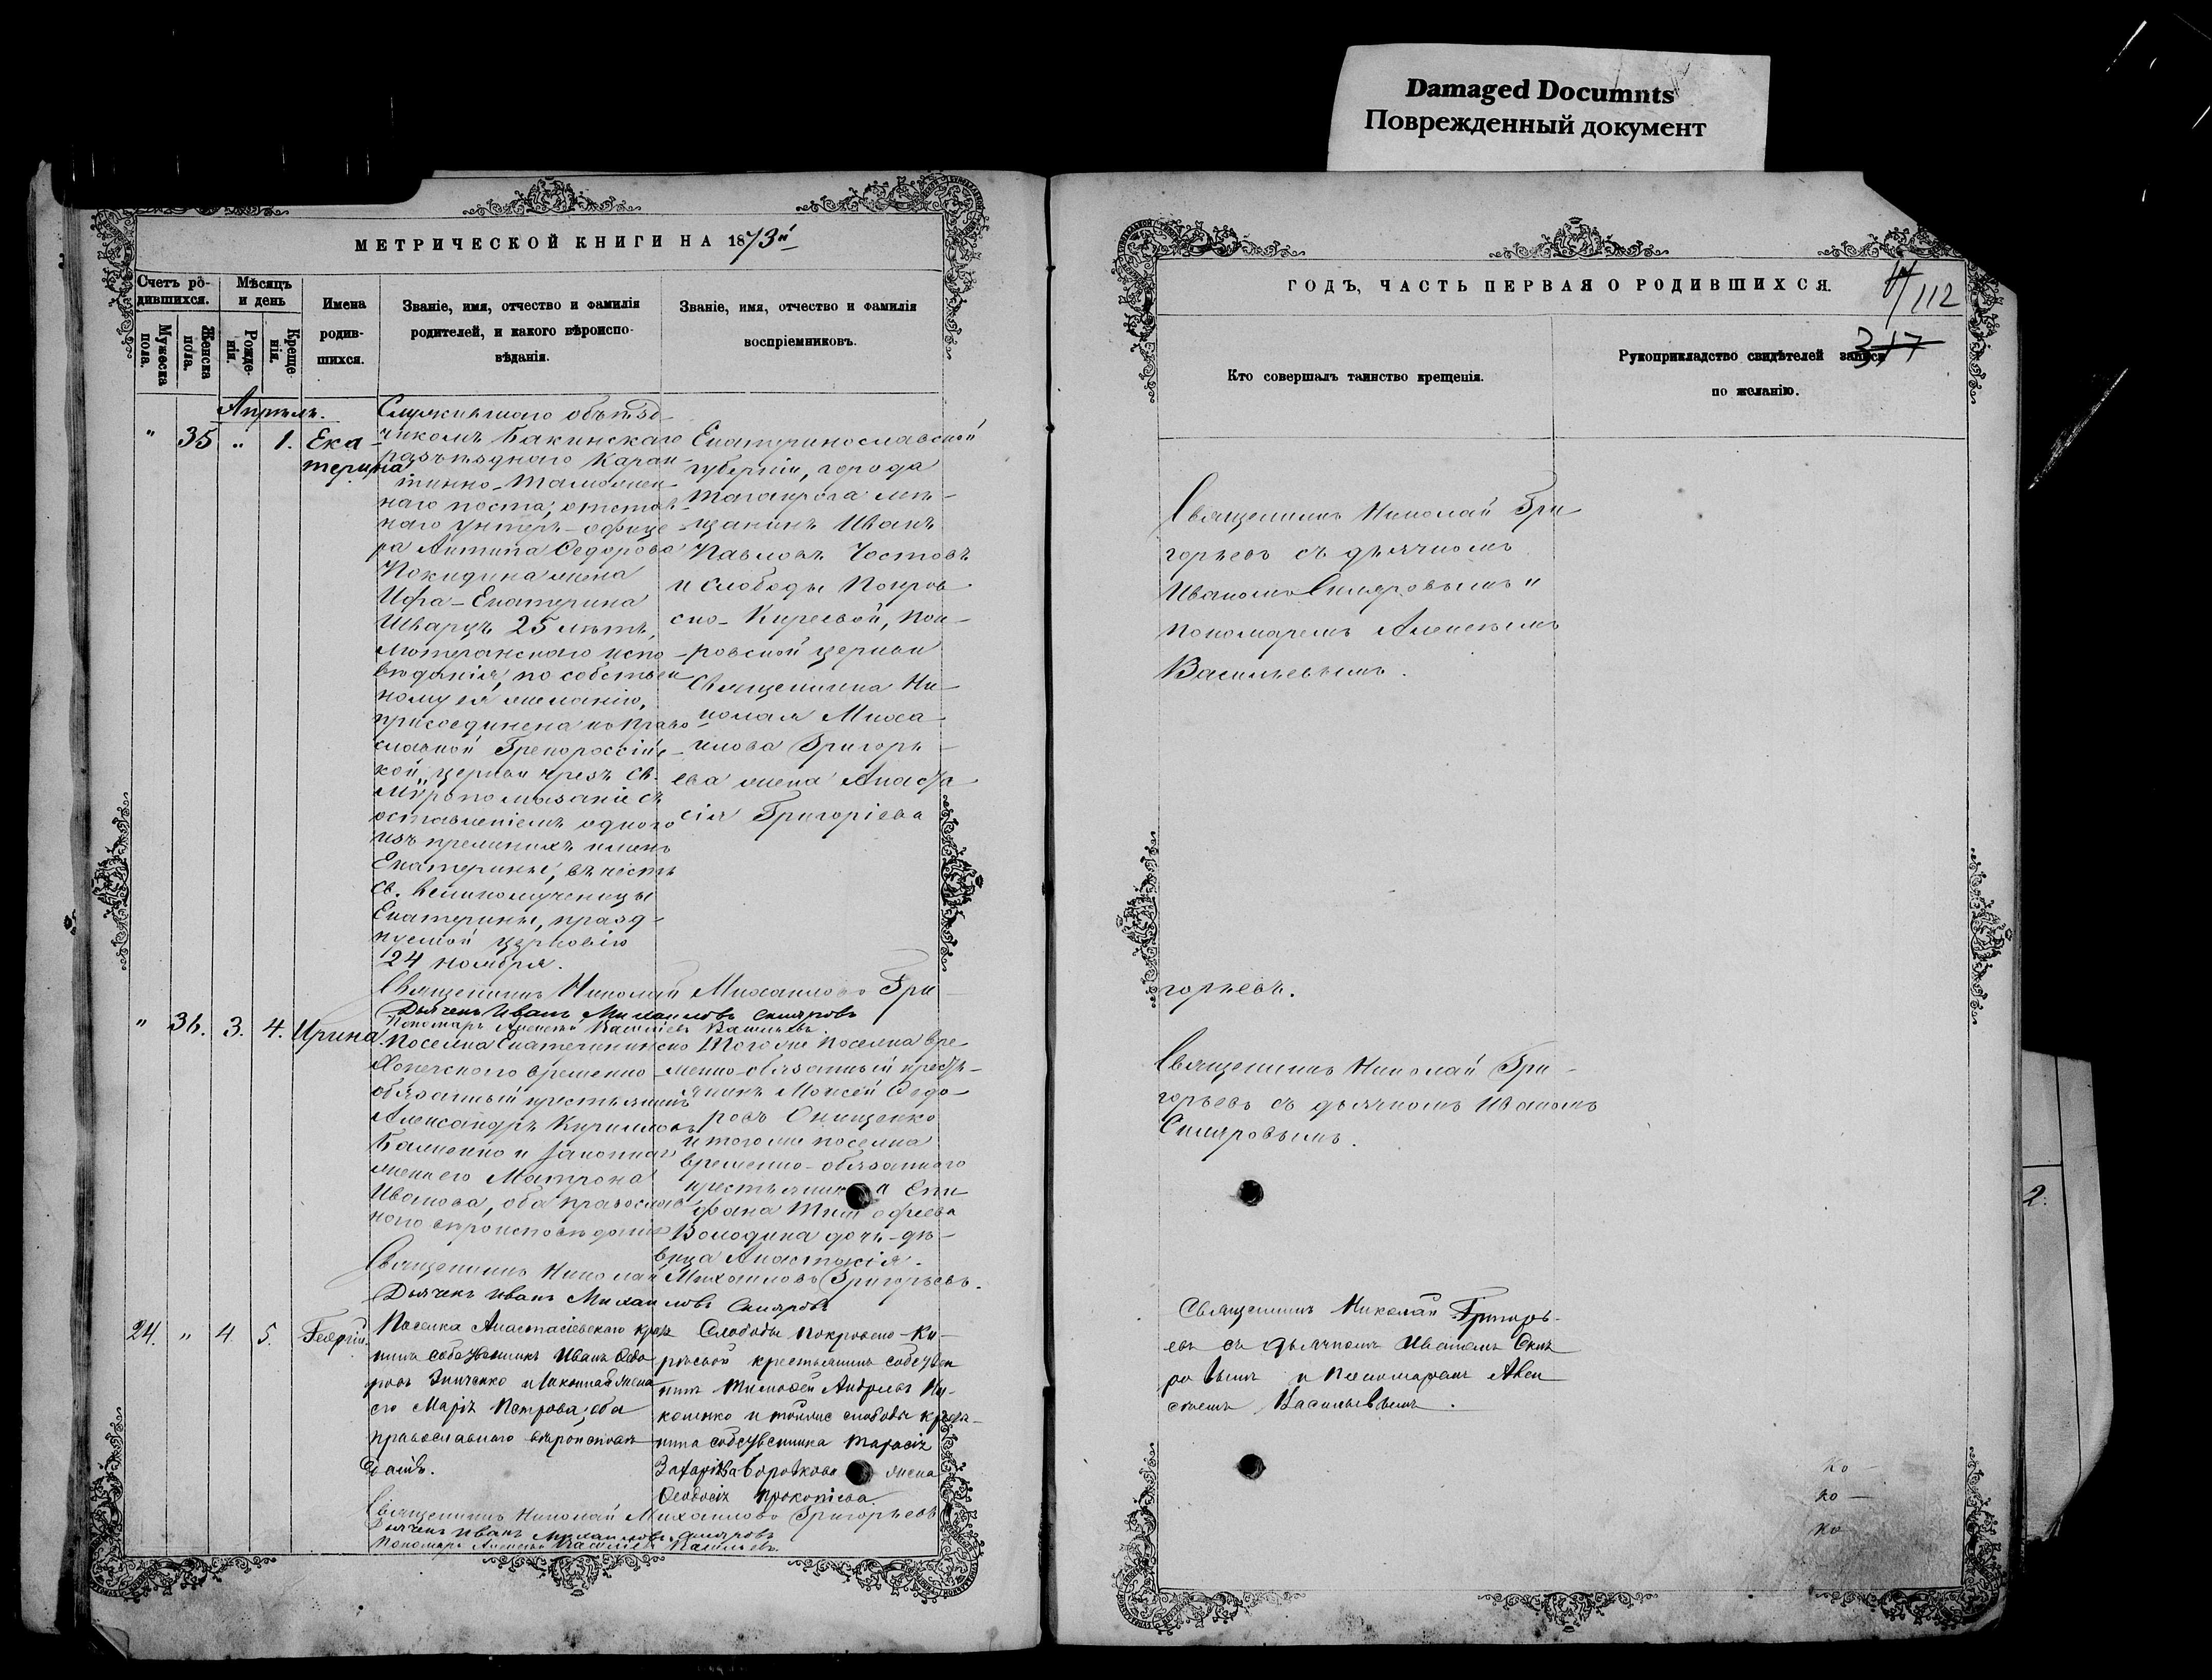 Damaged Documnts
Поврежденный документ
МЕТРИЧЕСКОЙ КНИГИ НА 1873й
Счетъ ро-
дившихся.
Мужеска пола.
Женска пола.
Мѣсяцъ
и день
Рожде-
нія.
Креще-
нія.
Имена
родив-
шихся.
Званіе, имя, отчество и фамилія
родителей, и какого вѣроиспо-
вѣданія.
Званіе, имя, отчество и фамилія
воспріемниковъ.
Апрѣль.
" 35 " 1. Ека
терина
Служившаго объѣзд-
чикомъ Бакинскаго
разъѣзднаго Каран-
тинно-Таможен
наго поста, отстав
наго унтеръ-офице
ра Антипа Ѳедорова
Покидина жена
Ифа-Екатерина
Шварцъ 25 лѣтъ,
Лютеранскаго испо
вѣданія, по собствен
ному ея желанію,
присоединена къ Право
славной Грекороссійс-
кой церкви чрезъ Св.
Мѵропомазаніе съ
оставленіемъ одного
изъ прежнихъ именъ
Екатерины, въ честь
Св. Великомученицы
Екатерины, празд-
нуемой церковію
24 ноября.
Екатеринославской
губерніи, города
Таганрога мѣ-
щанинъ Иванъ
Павловъ Чостовъ
и слободы Покров
ско-Киреевой, Пок-
ровской церкви
Священника Ни-
колая Михаи-
лова Григорь-
ева жена Анаста
сія Григоріева
Священникъ Николай Михаиловъ Гри
Дьячекъ Иванъ Михаиловъ Скляровъ
Пономарь Алексѣй Васильевъ Васильевъ.
" 36. 3. 4. Ирина.
Поселка Екатериненско
Хопечскаго временно
обязанный крестьянинъ
Александръ Кирилловъ
Балженко и законная
жена его Матрона
Иванова, оба православ
наго вѣроисповѣданія
Того же поселка вре
менно-обязанный кресть-
янинъ Моисей Ѳедо-
ровъ Онищенко
и того же поселка
временно-обязаннаго
крестьянина Епи
фана Тимофеева
Володина дочь-дѣ-
вица Анастасія.
Священникъ Николай Михаиловъ Григорьевъ.
Дьячекъ Иванъ Михаиловъ Скляровъ
24. " 4 5. Георгій
Поселка Анастасіевскаго кресть
нинъ собственникъ Иванъ Ѳедо
ровъ Зинченко и законная жена
его Марія Петрова, оба
православнаго вѣроисповѣ
данія.
Слободы Покровско-Ки-
рѣевой крестьянинъ собствен
никъ Тимофей Андреевъ
и тойже слободы кресть-
нина собственника Тарасія
Захаріева жена
Ѳеодосія Прокопіева.
Священникъ Николай Михаиловъ Григорьевъ
Дьячекъ Иванъ Михаиловъ Скляровъ
Пономарь Алексѣй Васильевъ Васильевъ.
ГОДЪ, ЧАСТЬ ПЕРВАЯ О РОДИВШИХСЯ.
112
317
Кто совершалъ таинство крещенія.
Рукоприкладство свидѣтелей записи
по желанію.
Священникъ Николай Гри
горьевъ съ дьячкомъ
Иваномъ Скляровымъ и
пономаремъ Алексѣемъ
Васильевымъ.
горьевъ.
Священникъ Николай Гри-
горьевъ съ дьячкомъ Иваномъ
Скляровымъ.
Священникъ Николай Григорь-
евъ съ дьячкомъ Иваномъ Скля
ровымъ и Пономаремъ Алек
сѣемъ Васильевымъ.
ко-
ко-
ко
2.